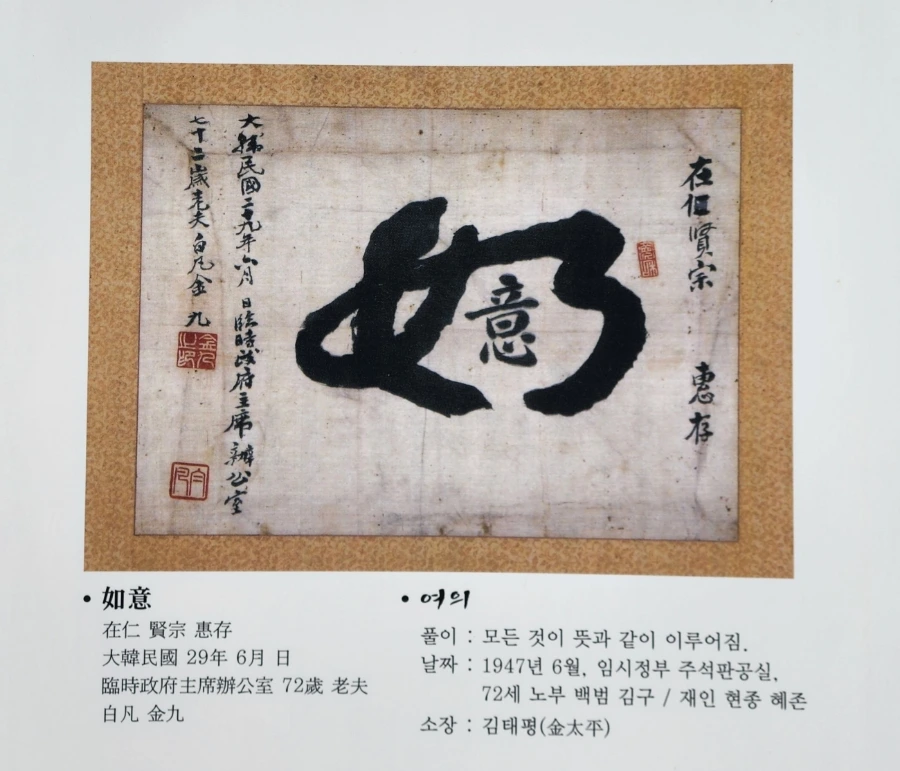 在仁賢宗 惠存
如意
大韓民國二十九年六月 日臨時政府主席辦公室
七十二歲老夫白凡金 九
金九之印
白凡
• 如意
在仁 賢宗 惠存
大韓民國 29年 6月 日
臨時政府主席辦公室 72歲 老夫
白凡 金九
• 여의
풀이 : 모든 것이 뜻과 같이 이루어짐.
날짜 : 1947년 6월, 임시정부 주석판공실,
72세 노부 백범 김구 / 재인 현종 혜존
소장 : 김태평(金太平)